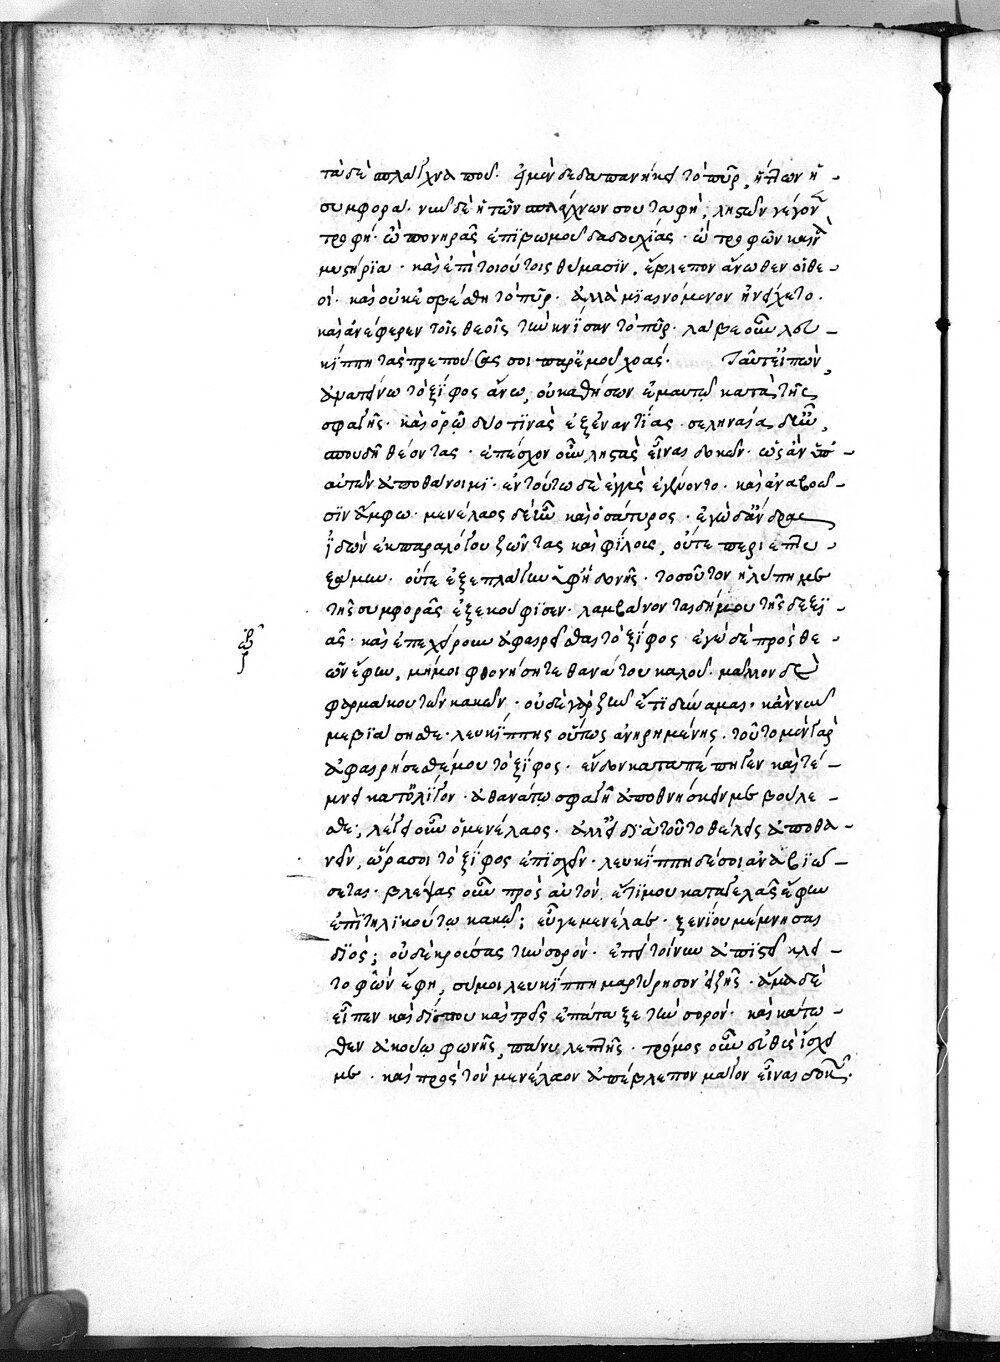 τὰ δὲ σπλάγχνα ποῦ. εἰ μὲν δεδαπανήκει τὸ πῦρ, ἥττων ἡ -
συμφορά. νῦν δὲ ἡ τῶν σπλάγχνων σου ταφὴ, ληστῶν γέγον
τροφή. ὢ πονηρᾶς ἐπὶ βωμοῦ δαδουχίας. ὢ τροφῶν καινὰ
μυστήρια. καὶ ἐπὶ τοιούτοις θύμασιν, ἔβλεπον ἄνωθεν οἱ θε -
οὶ. καὶ οὐκ ἐσβέσθη τὸ πῦρ. ἀλλὰ μιαινόμενον ἠνείχετο.
καὶ ἀνέφερεν τοῖς θεοῖς τὴν κνίσαν τὸ πῦρ. λάβε οὖν λευ -
κίππη τὰς πρεπούσας σοι παρ' ἐμοῦ χοάς. Ταῦτ' εἰπὼν,
ἀνατείνω τὸ ξίφος ἄνω, ὡς καθήσων ἐμαυτῷ κατὰ τῆς
σφαγῆς. καὶ ὁρῶ δύο τινὰς ἐξ ἐναντίας. σεληναία δὲ ἦν,
σπουδῇ θέοντας. ἐπέσχον οὖν ληστὰς εἶναι δοκῶν. ὡς ἂν ὑπ' -
αὐτῶν ἀποθάνοιμι. ἐν τούτω δὲ ἐγγὺς ἐγένοντο. καὶ ἀναβοῶ -
σιν ἄμφω. μενέλαος δὲ ἦν καὶ ὁ σάτυρος. ἐγὼ δ' ἄνδρας
ἰδὼν ἐκ παραλόγου ζῶντας καὶ φίλους, οὔτε περιεπλε
ξάμην. οὔτε ἐξεπλάγην ὑφ' ἡδονῆς. τοσοῦτον ἡ λύπη με
τῆς συμφορᾶς ἐξεκούφισεν. λαμβάνονται δή μου τῆς δεξι -
ᾶς. καὶ ἐπεχείρουν ἀφαιρεῖσθαι τὸ ξίφος. ἐγὼ δὲ πρὸς θε -
ῶν ἔφην, μή μοι φθονήσητε θανάτου καλοῦ. μᾶλλον δὲ
φαρμάκου τῶν κακῶν. οὐδὲ γὰρ ζῆν ἔτι δύναμαι, κἂν νῦν
με βιάσησθε. λευκίππης οὕτως ἀνηρημένης. τοῦτο μὲν γὰρ
ἀφαιρήσεσθέ μου τὸ ξίφος. ἔνδον καταπέπηγεν καὶ τέ -
μνει κατ' ὀλίγον. ἀθανάτω σφαγῆ ἀποθνήσκειν με βούλε -
σθε; λέγει οὖν ὁ μενέλαος. ἀλλ' εἰ διὰ τοῦτο θέλεις ἀποθα -
νεῖν, ὥρα σοι τὸ ξίφος ἐπισχεῖν. λευκίππη δέ σοι ἀναβιώ -
σεται. βλέψας οὖν πρὸς αὐτόν. ἔτι μου καταγελᾶς ἔφην
ἐπὶ τηλικούτω κακῶ; εὖγε μενέλαε. ξενίου μέμνησαι
διός; ὁ δὲ κρούσας τὴν σορόν. ἐπεὶ τοίνυν ἀπιστεῖ κλει -
τοφῶν ἔφη, σύ μοι λευκίππη μαρτύρησον εἰ ζῆς. ἅμα δὲ
εἶπεν καὶ δίς που καὶ τρὶς ἐπάταξε τὴν σορόν. καὶ κάτω -
θεν ἀκούω φωνῆς, πάνυ λεπτῆς. τρόμος οὖν εὐθὺς ἴσχει
με. καὶ πρὸς τὸν μενέλαον ἀπέβλεπον μάγον εἶναι δοκῶν.